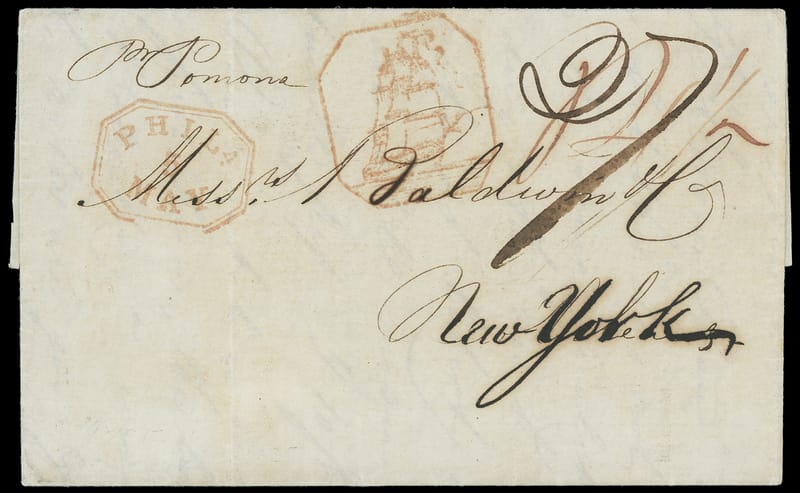 Pr Pomona
PHILA
8
MAY
27
Messrs Baldwin & Co
New York